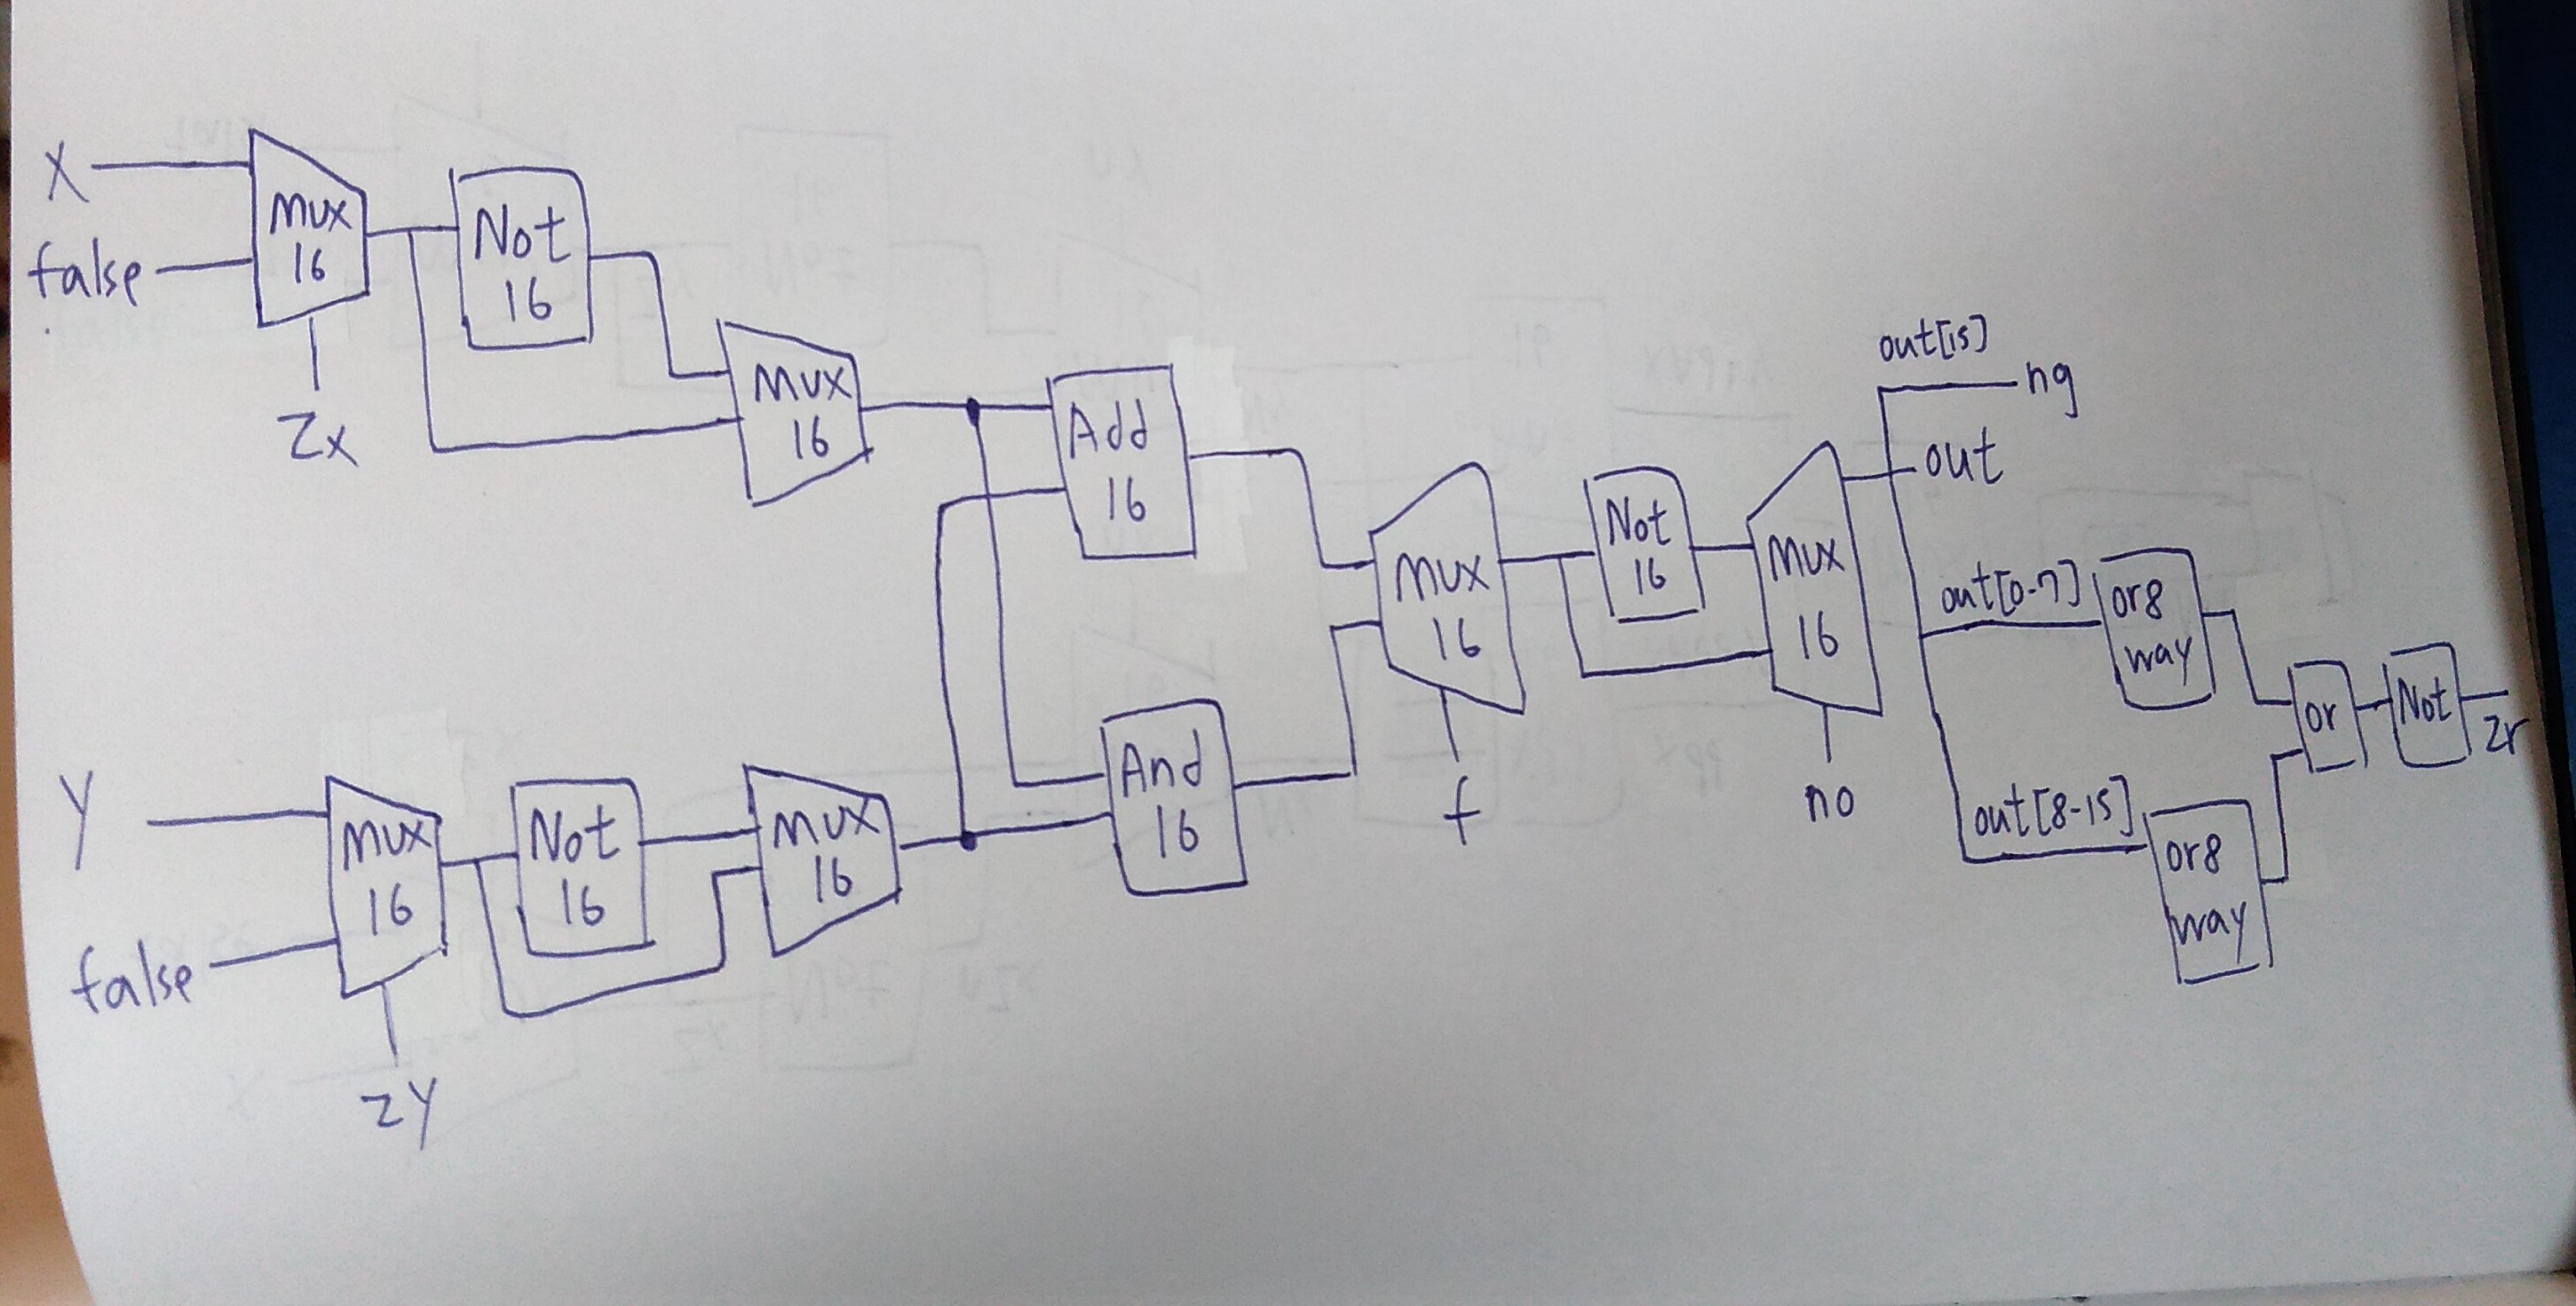 X
false
Mux
16
Zx
Not
16
Mux
16
Add
16
Y
false
Mux
16
zy
Not
16
Mux
16
And
16
Mux
16
f
Not
16
Mux
16
no
out[15]
ng
out
out[0-7]
or8
way
out[8-15]
or8
way
or
Not
zr